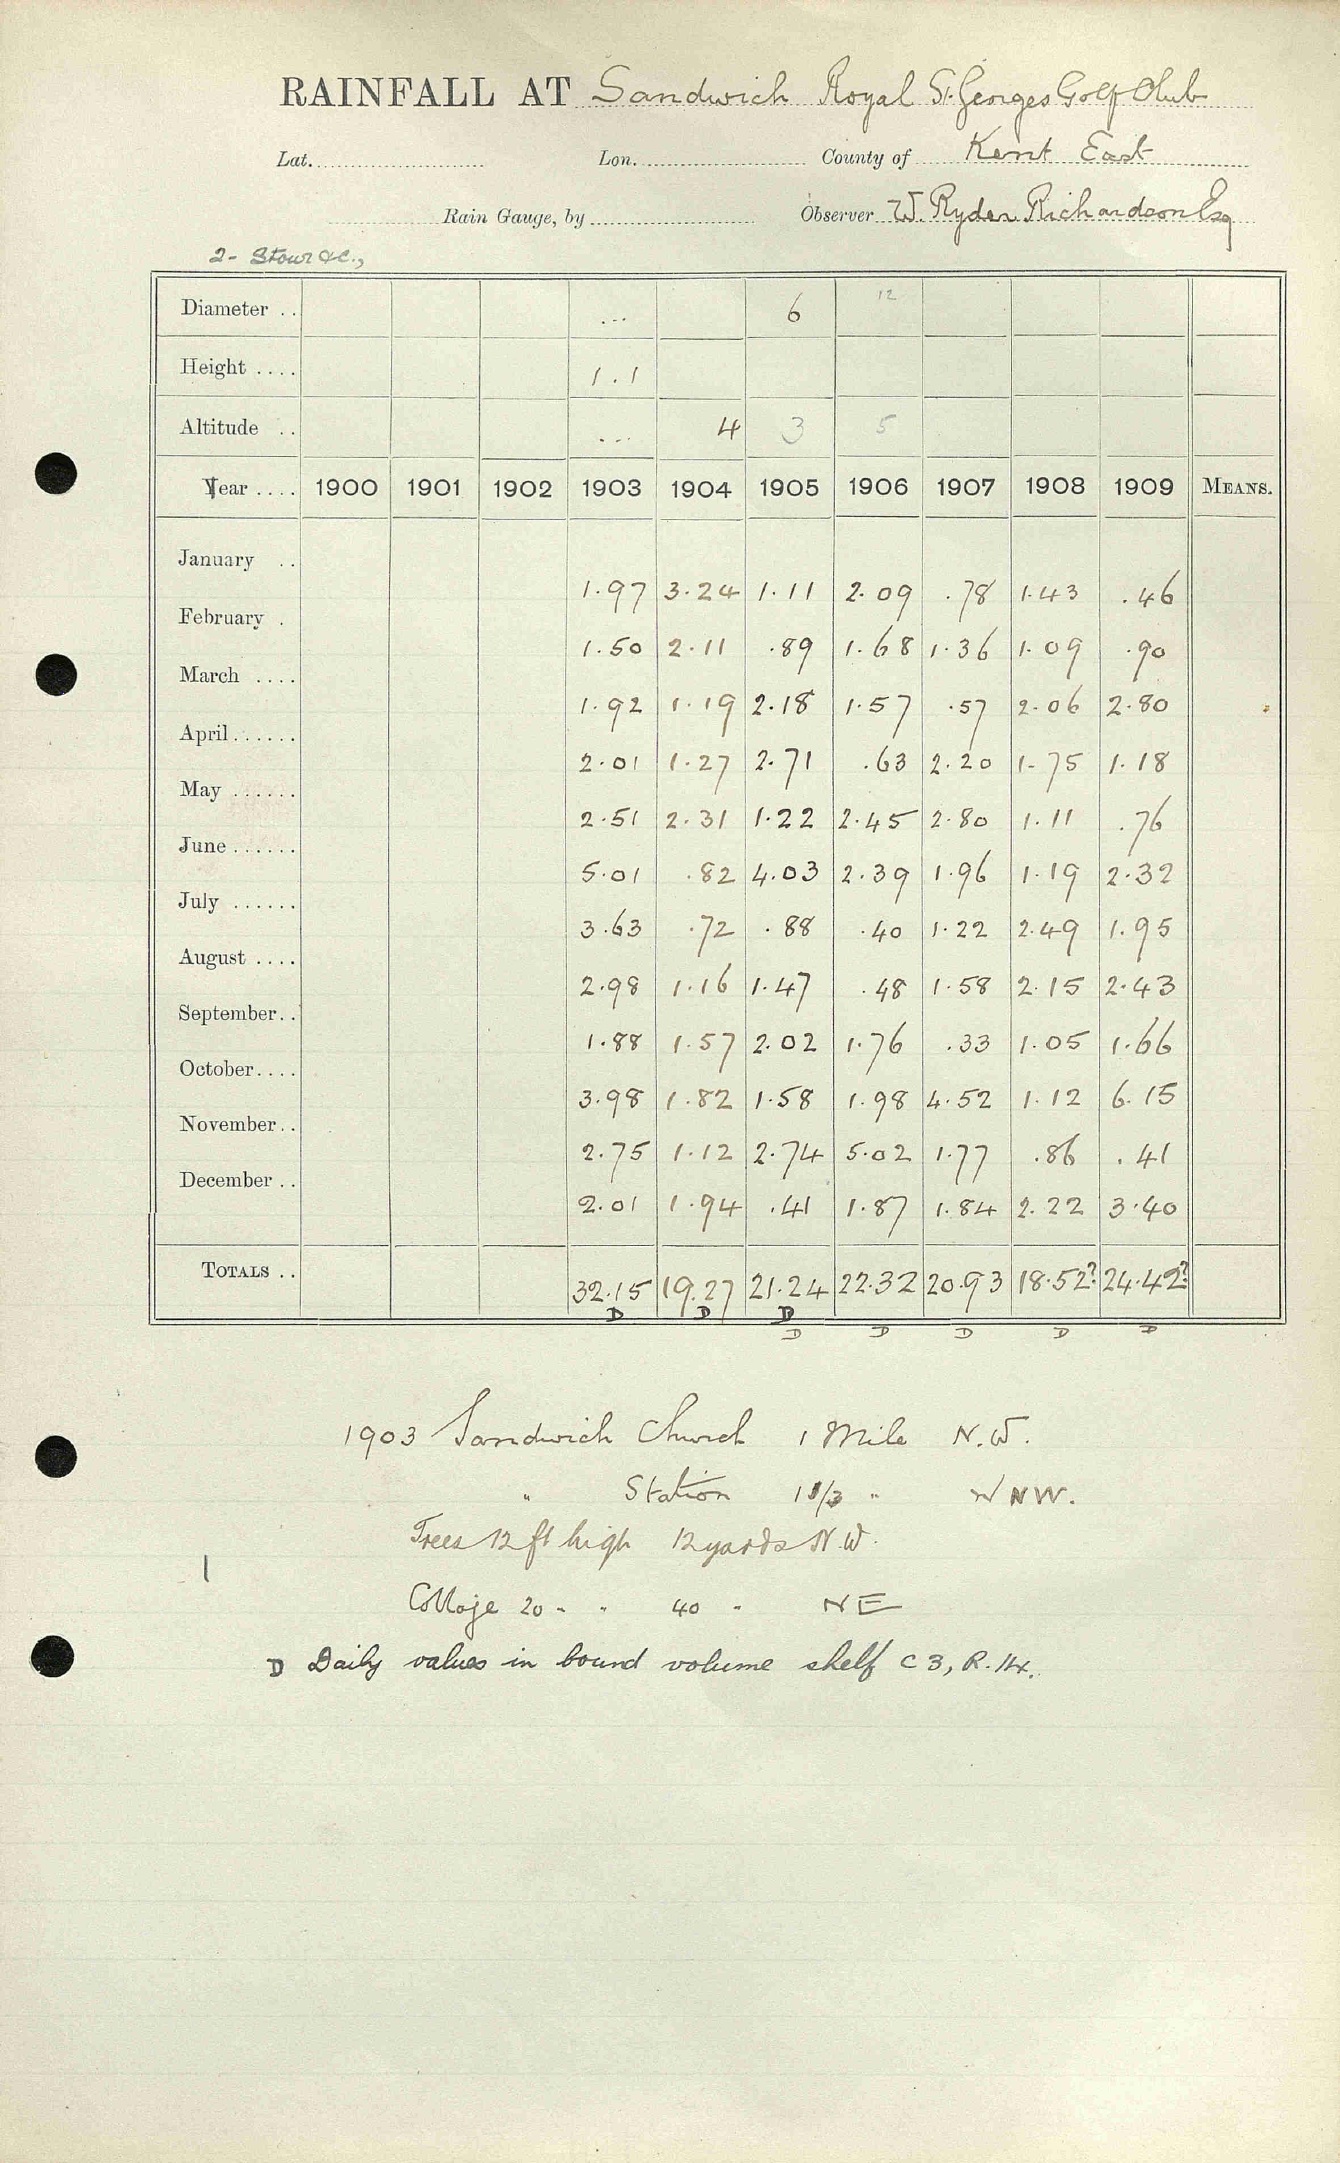 RAINFALL AT Sandwich Royal St. Georges Golf Club
Lat. Lon. County of Kent East
Rain Gauge, by Observer W. Ryder Richardson Esq
2- Stour &c.,
Diameter .. ... 6 12
Height .... 1.1
Altitude .. ... 4 3 5
Year .... 1900 1901 1902 1903 1904 1905 1906 1907 1908 1909 MEANS.
January .. 1.97 3.24 1.11 2.09 .78 1.43 .46
February . 1.50 2.11 .89 1.68 1.36 1.09 .90
March .... 1.92 1.19 2.18 1.57 .57 2.06 2.80
April...... 2.01 1.27 2.71 .63 2.20 1.75 1.18
May ...... 2.51 2.31 1.22 2.45 2.80 1.11 .76
June ...... 5.01 .82 4.03 2.39 1.96 1.19 2.32
July ...... 3.63 .72 .88 .40 1.22 2.49 1.95
August .... 2.98 1.16 1.47 .48 1.58 2.15 2.43
September.. 1.88 1.57 2.02 1.76 .33 1.05 1.66
October.... 3.98 1.82 1.58 1.98 4.52 1.12 6.15
November.. 2.75 1.12 2.74 5.02 1.77 .86 .41
December .. 2.01 1.94 .41 1.87 1.84 2.22 3.40
TOTALS .. 32.15 19.27 21.24 22.32 20.93 18.52? 24.42?
D D D
D D D D D
1903 Sandwich Church 1 Mile N.W.
" Station 1 1/3 " WNW.
Trees 12 ft high 12 yards N.W.
1
Cottage 20 " " 40 " NE
D Daily values in bound volume shelf C3, R.14.